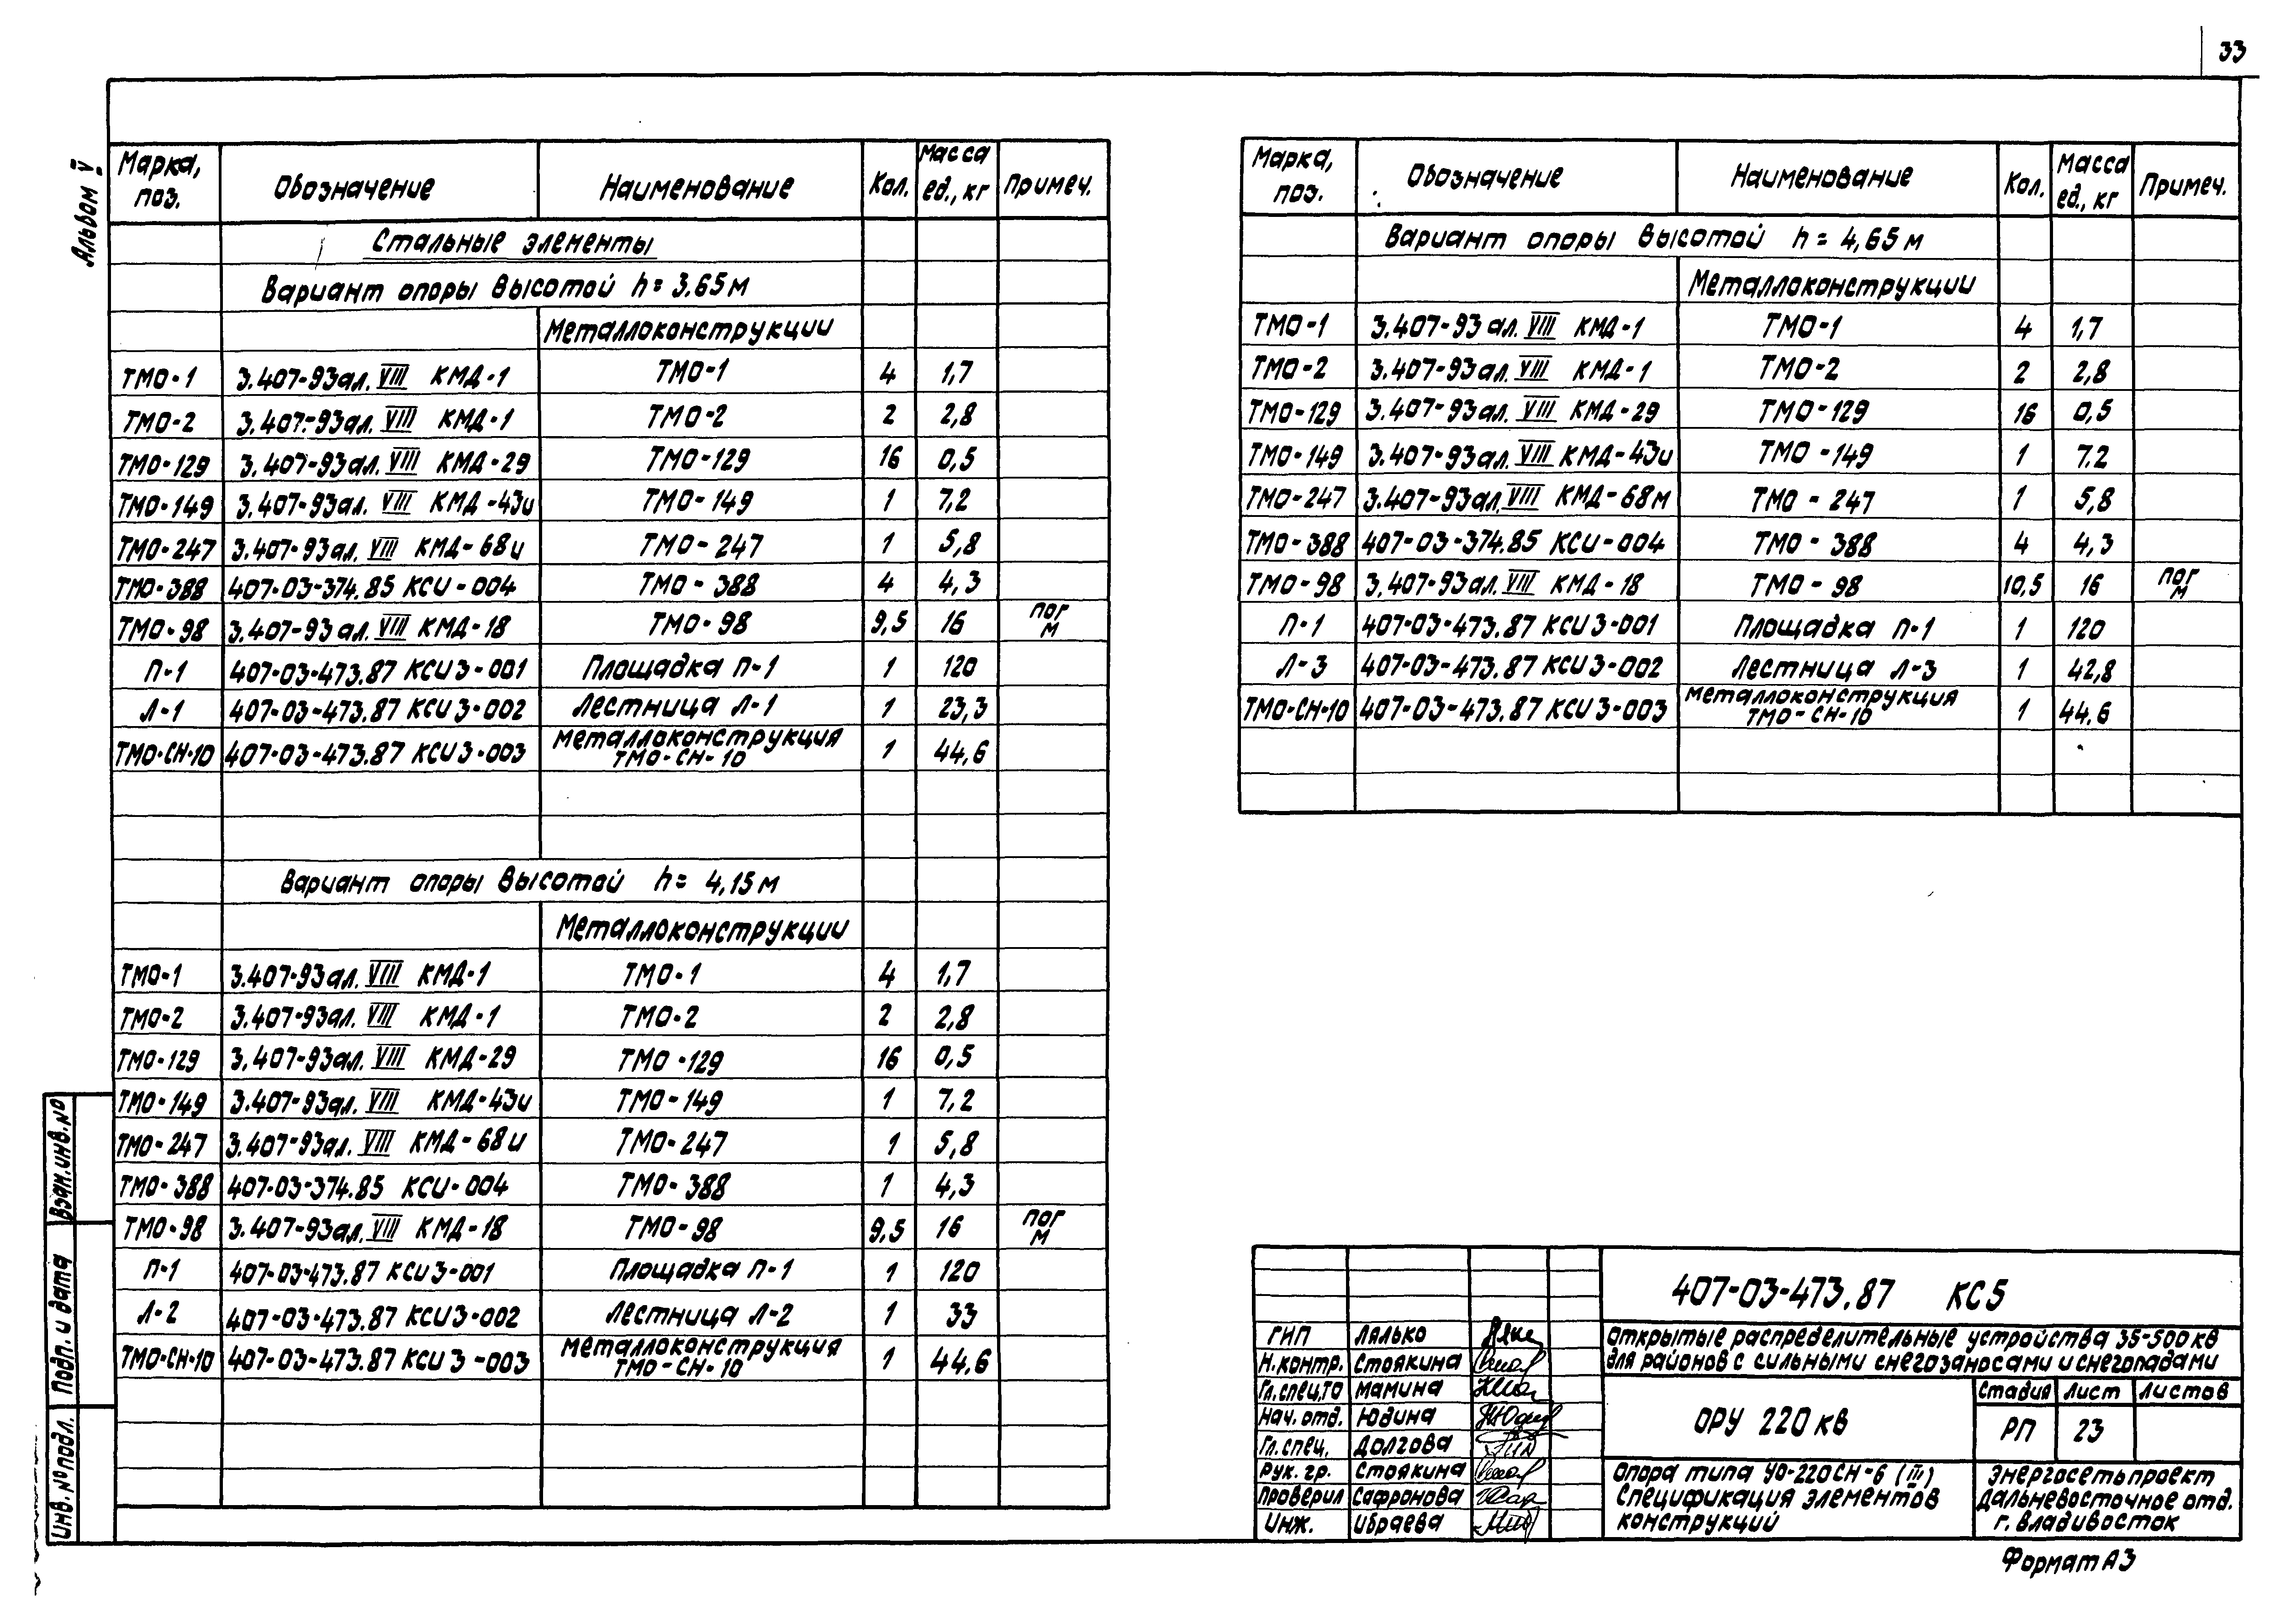 33
Альбом V
Марка, поз. Обозначение Наименование Кол. Масса ед., кг Примеч.
Стальные элементы
Вариант опоры высотой h = 3.65 м
Металлоконструкции
ТМО-1 3.407-93 ал. VIII КМД-1 ТМО-1 4 1,7
ТМО-2 3.407-93 ал. VIII КМД-1 ТМО-2 2 2,8
ТМО-129 3.407-93 ал. VIII КМД-29 ТМО-129 16 0,5
ТМО-149 3.407-93 ал. VIII КМД-43и ТМО-149 1 7,2
ТМО-247 3.407-93 ал. VIII КМД-68и ТМО-247 1 5,8
ТМО-388 407-03-374.85 КСИ-004 ТМО-388 4 4,3
ТМО-98 3.407-93 ал. VIII КМД-18 ТМО-98 9,5 16 пог м
П-1 407-03-473.87 КСИ3-001 Площадка П-1 1 120
Л-1 407-03-473.87 КСИ3-002 Лестница Л-1 1 23,3
ТМО-СН-10 407-03-473.87 КСИ3-003 Металлоконструкция ТМО-СН-10 1 44,6
Вариант опоры высотой h = 4,15 м
Металлоконструкции
ТМО-1 3.407-93 ал. VIII КМД-1 ТМО-1 4 1,7
ТМО-2 3.407-93 ал. VIII КМД-1 ТМО-2 2 2,8
ТМО-129 3.407-93 ал. VIII КМД-29 ТМО-129 16 0,5
ТМО-149 3.407-93 ал. VIII КМД-43и ТМО-149 1 7,2
ТМО-247 3.407-93 ал. VIII КМД-68и ТМО-247 1 5,8
ТМО-388 407-03-374.85 КСИ-004 ТМО-388 1 4,3
ТМО-98 3.407-93 ал. VIII КМД-18 ТМО-98 9,5 16 пог м
П-1 407-03-473.87 КСИ3-001 Площадка П-1 1 120
Л-2 407-03-473.87 КСИ3-002 Лестница Л-2 1 33
ТМО-СН-10 407-03-473.87 КСИ3-003 Металлоконструкция ТМО-СН-10 1 44,6
Марка, поз. Обозначение Наименование Кол. Масса ед., кг Примеч.
Вариант опоры высотой h = 4,65 м
Металлоконструкции
ТМО-1 3.407-93 ал. VIII КМД-1 ТМО-1 4 1,7
ТМО-2 3.407-93 ал. VIII КМД-1 ТМО-2 2 2,8
ТМО-129 3.407-93 ал. VIII КМД-29 ТМО-129 16 0,5
ТМО-149 3.407-93 ал. VIII КМД-43и ТМО-149 1 7.2
ТМО-247 3.407-93 ал. VIII КМД-68м ТМО-247 1 5,8
ТМО-388 407-03-374.85 КСИ-004 ТМО-388 4 4,3
ТМО-98 3.407-93 ал. VIII КМД-18 ТМО-98 10,5 16 пог м
П-1 407-03-473.87 КСИ3-001 Площадка П-1 1 120
Л-3 407-03-473.87 КСИ3-002 Лестница Л-3 1 42,8
ТМО-СН-10 407-03-473.87 КСИ3-003 Металлоконструкция ТМО-СН-10 1 44.6
Взам.инв.№
Подп. и дата
Инв. № подл.
407-03-473.87 КС5
Открытые распределительные устройства 35-500 кв
для районов с сильными снегозаносами и снегопадами
ГИП Лялько
Н.контр. Стоякина
Гл.спец.ТО Мамина
Нач. отд. Юдина
Гл. спец. Долгова
Рук. гр. Стоякина
Проверил Сафронова
Инж. Ибраева
ОРУ 220 кв
Стадия Лист Листов
РП 23
Опора типа УО-220СН-6 (III)
Спецификация элементов
конструкций
Энергосетьпроект
Дальневосточное отд.
г. Владивосток
Формат А3